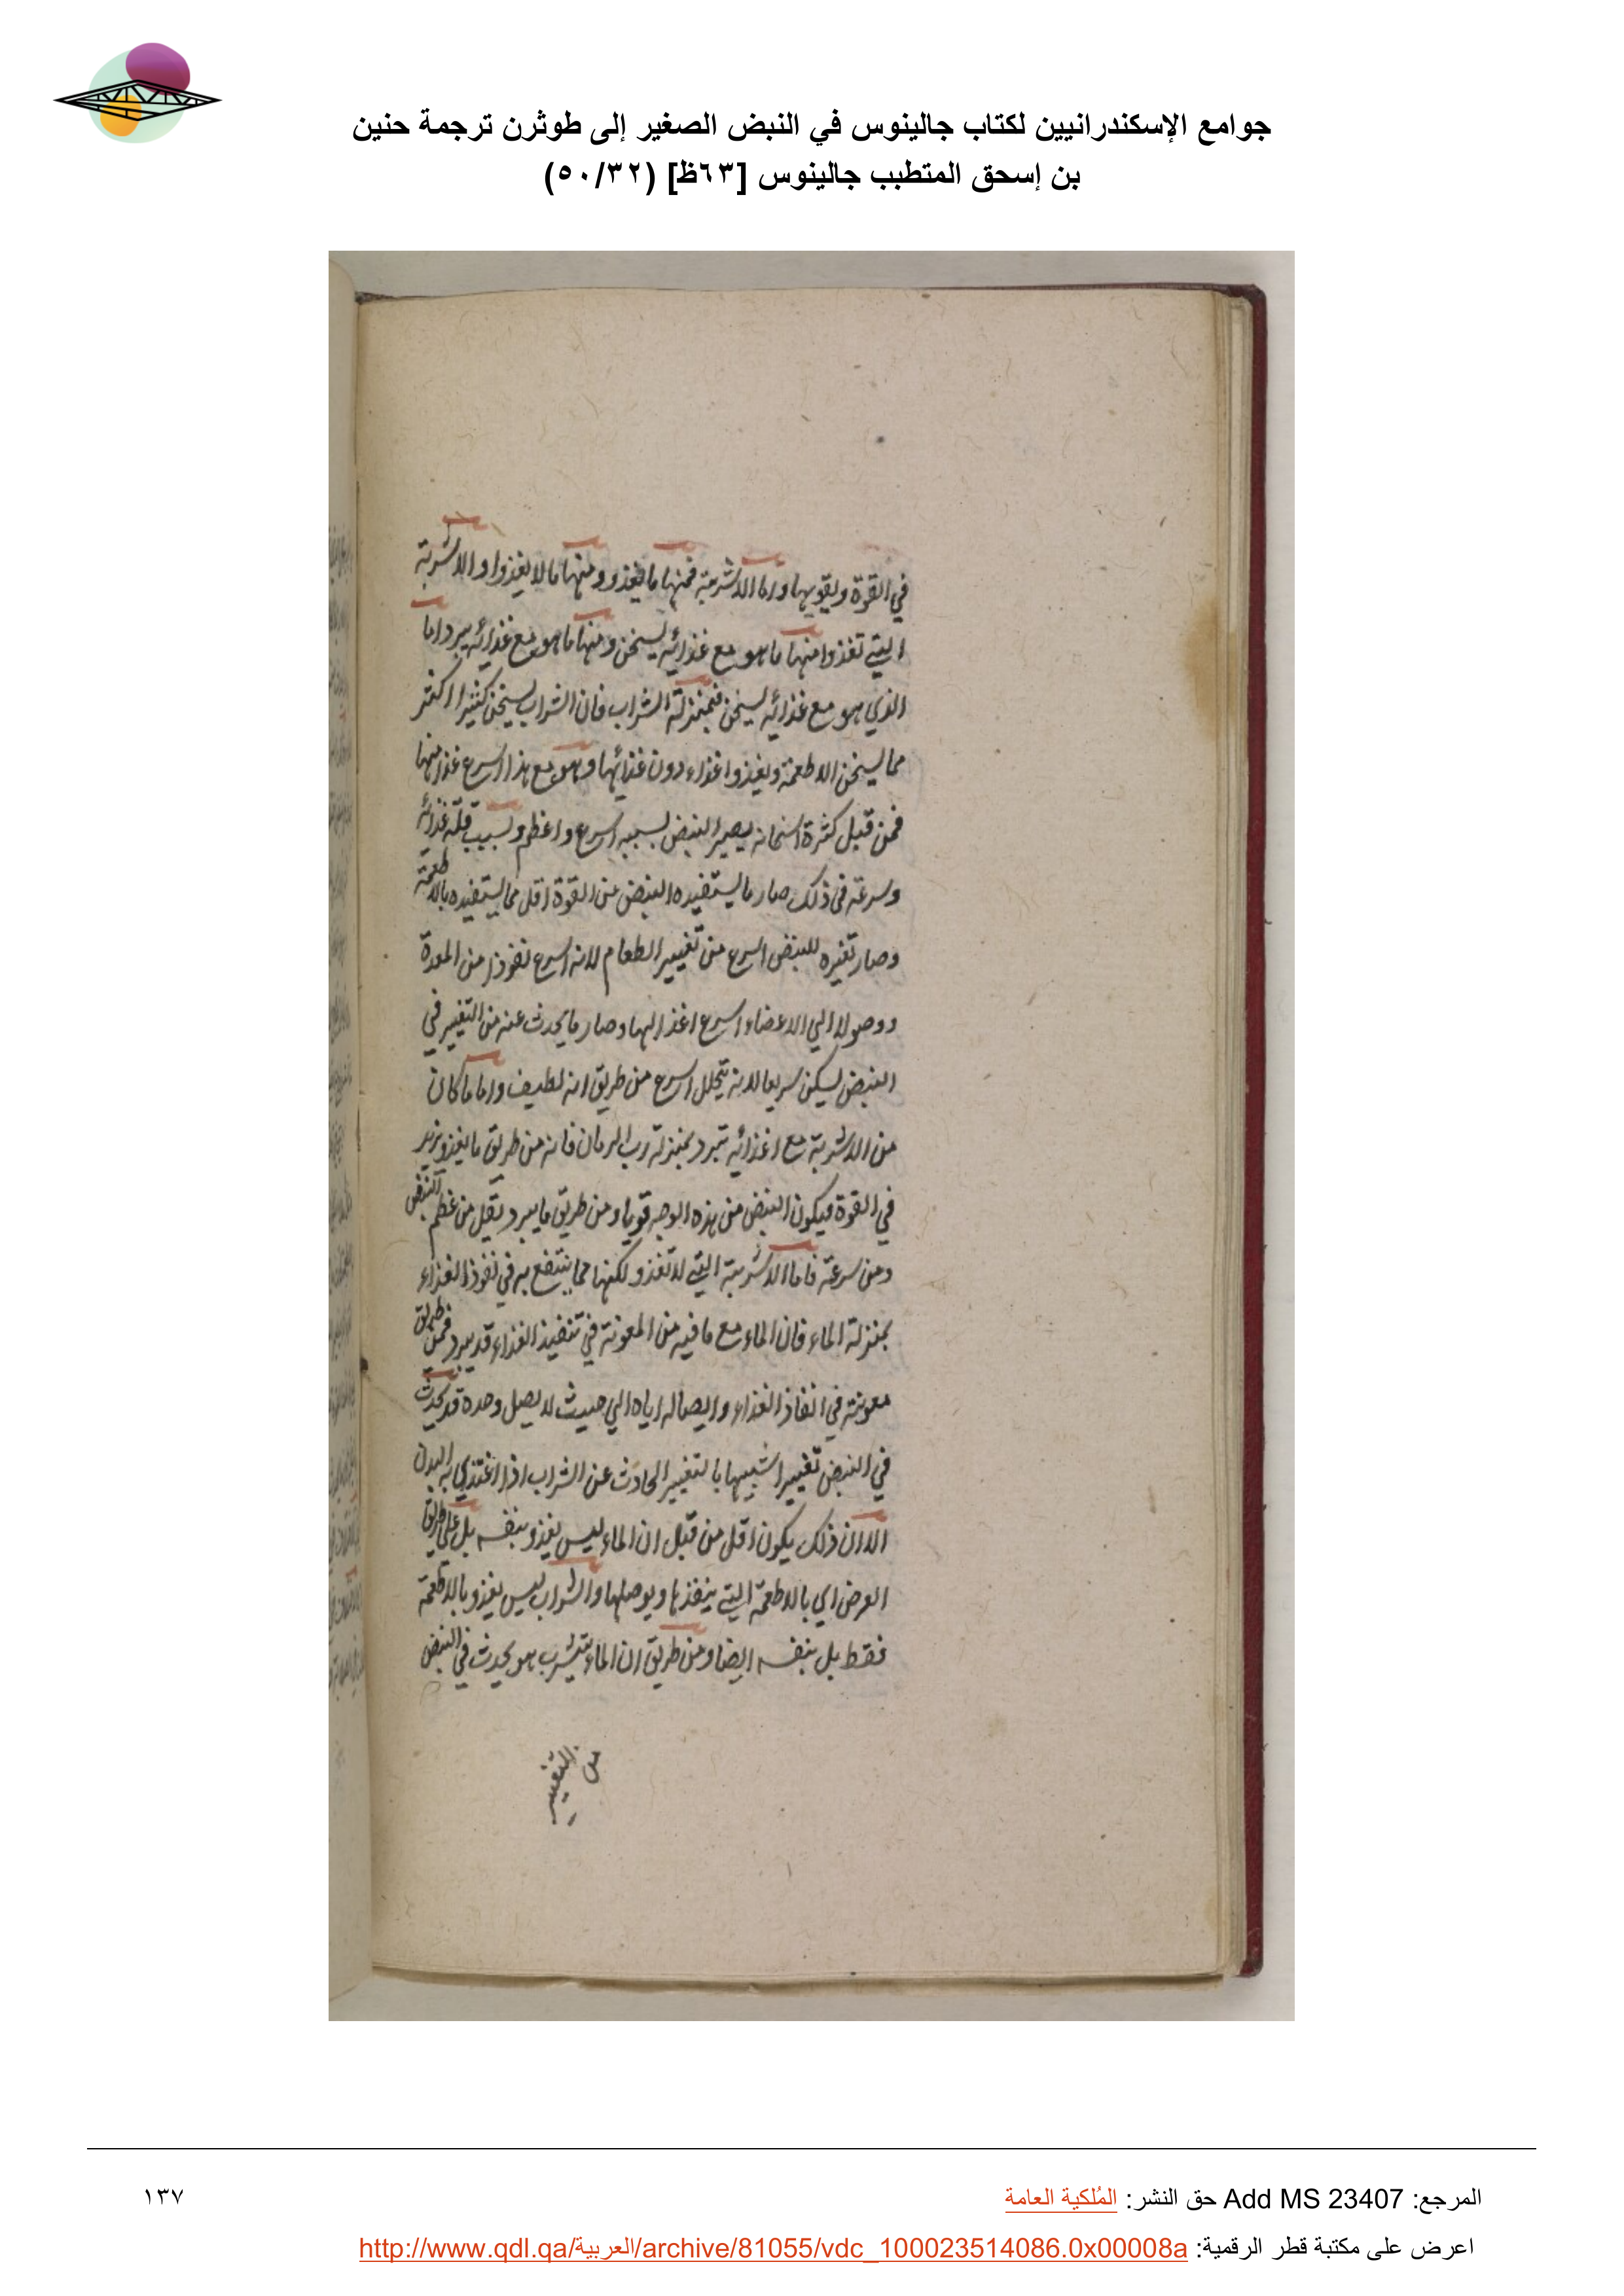 جوامع الإسكندرانيين لكتاب جالينوس في النبض الصغير إلى طوثرن ترجمة حنين
بن إسحق المتطبب جالينوس [٦٣ظ] (٥٠/٣٢)
في القوة ويقويها واما الاشربة فمنها ما يغذو ومنها ما لا يغذوا والاشربة
التي تغذوا منها ما هو مع غذائه يسخن ومنها ما هو مع غذائه يبرد اما
الذي هو مع غذائه يسخن فبمنزلة الشراب فان الشراب يسخن كثيرا اكثر
مما يسخن الاطعمة ويغذوا غذاء دون غذائها وهو مع هذا اسرع غذا منها
فمن قبل كثرة اسخانه يصير النبض بسببه اسرع واعظم وبسبب قلة غذائه
وسرعته في ذلك صار ما يستفيده النبض من القوة اقل مما يستفيده بالاطعمة
وصار تغيره للنبض اسرع من تغيير الطعام لانه اسرع نفوذا من المعدة
ووصولا الي الاعضاء اسرع اغذا لها وصار ما يحدث عنه من التغيير في
النبض يسكن سريعا لانه يتحلل اسرع من طريق انه لطيف واما ما كان
من الاشربة مع اغذائه تبرد بمنزلة رب الرمان فانه من طريق ما يغذو يزيد
في القوة فيكون النبض من هذه الوجه قويا ومن طريق ما يبرد يقل من عظم النبض
ومن سرعته فاما الاشربة التي لا تغذو لكنها مما ينتفع به في نفوذ الغذاء
بمنزلة الماء فان الماء مع ما فيه من المعونة في تنفيذ الغذاء قد يبرد فمن طريق
معونته في انفاذ الغذاء وايصاله اياه الي حيث لا يصل وحده قد يحدث
في النبض تغييرا شبيها بالتغيير الحادث عن الشراب اذا اغتذي به البدن
الا ان ذلك يكون اقل من قبل ان الماء ليس يغذو بنفسه بل علي طريق
العرض اي بالاطعمة التي ينفذها ويوصلها والشراب ليس يغذو بالاطعمة
فقط بل بنفسه ايضا ومن طريق ان الماء يشرب هو يحدث في النبض
من التغيير
المرجع: Add MS 23407 حق النشر: المُلكية العامة
١٣٧
اعرض على مكتبة قطر الرقمية: http://www.qdl.qa/العربية/archive/81055/vdc_100023514086.0x00008a